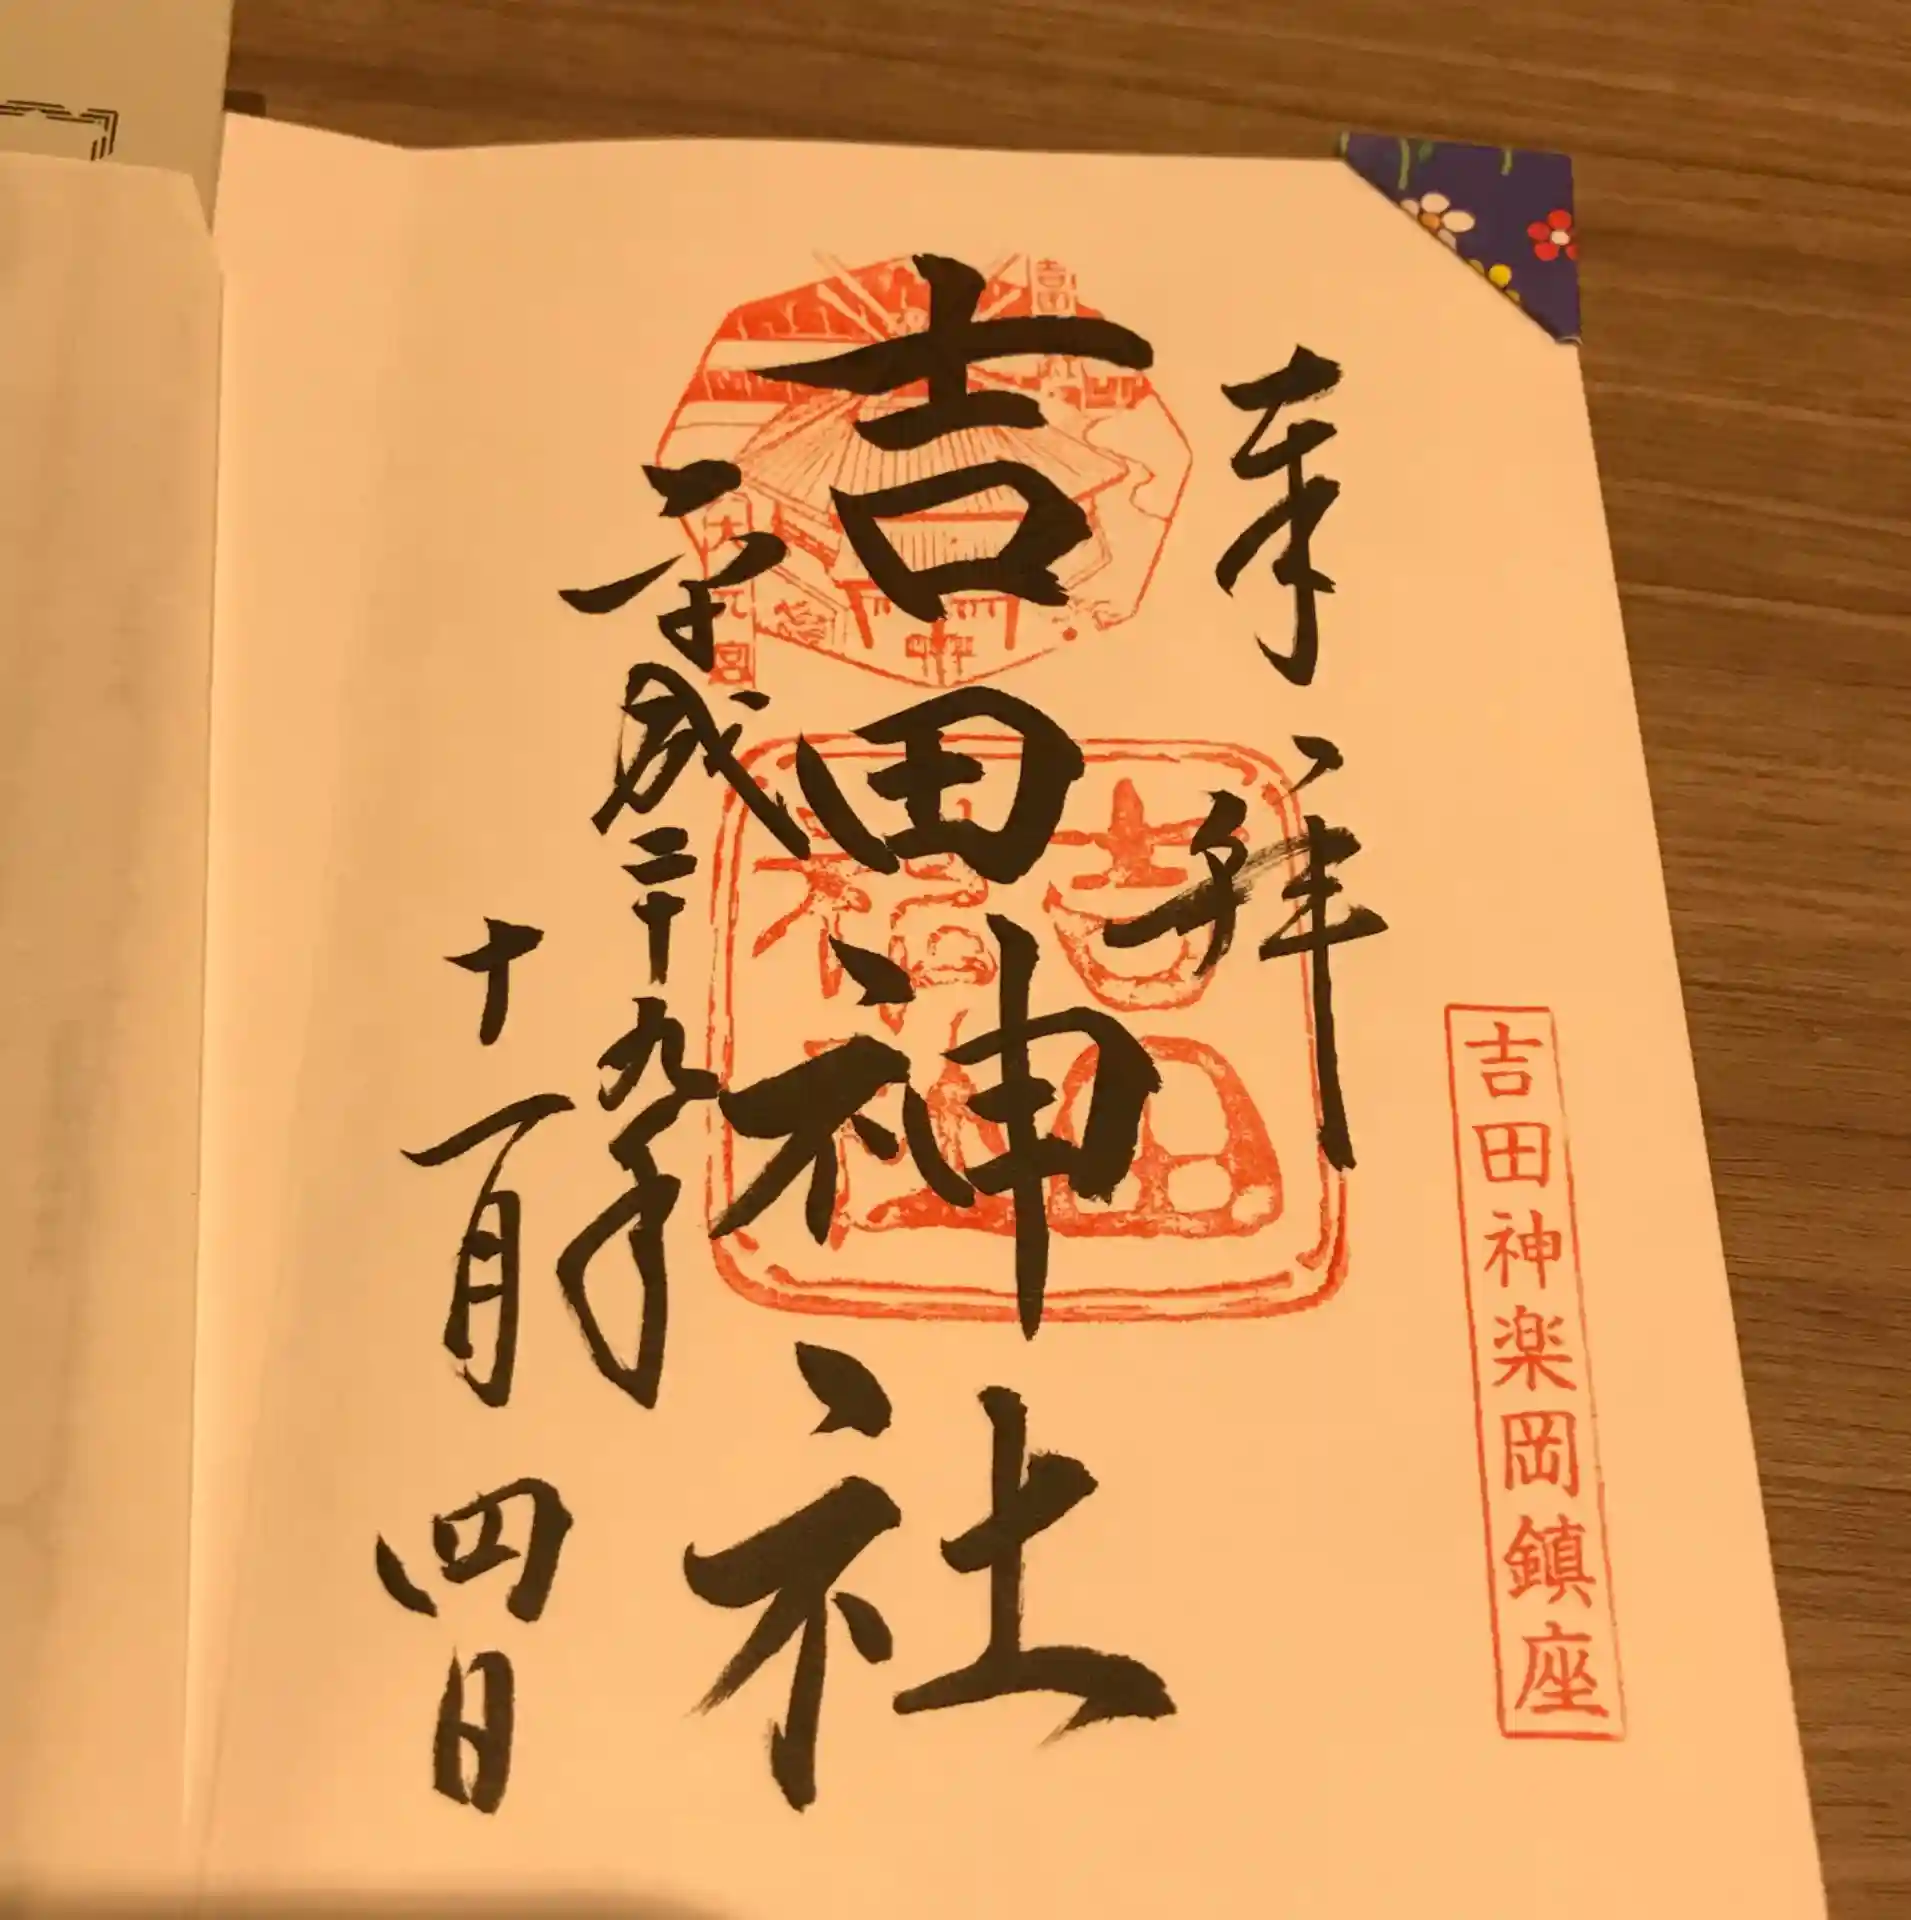 奉拝
吉田神楽岡鎮座
吉田神社
平成二十九年
十一月四日
吉田
大元宮
吉田神社